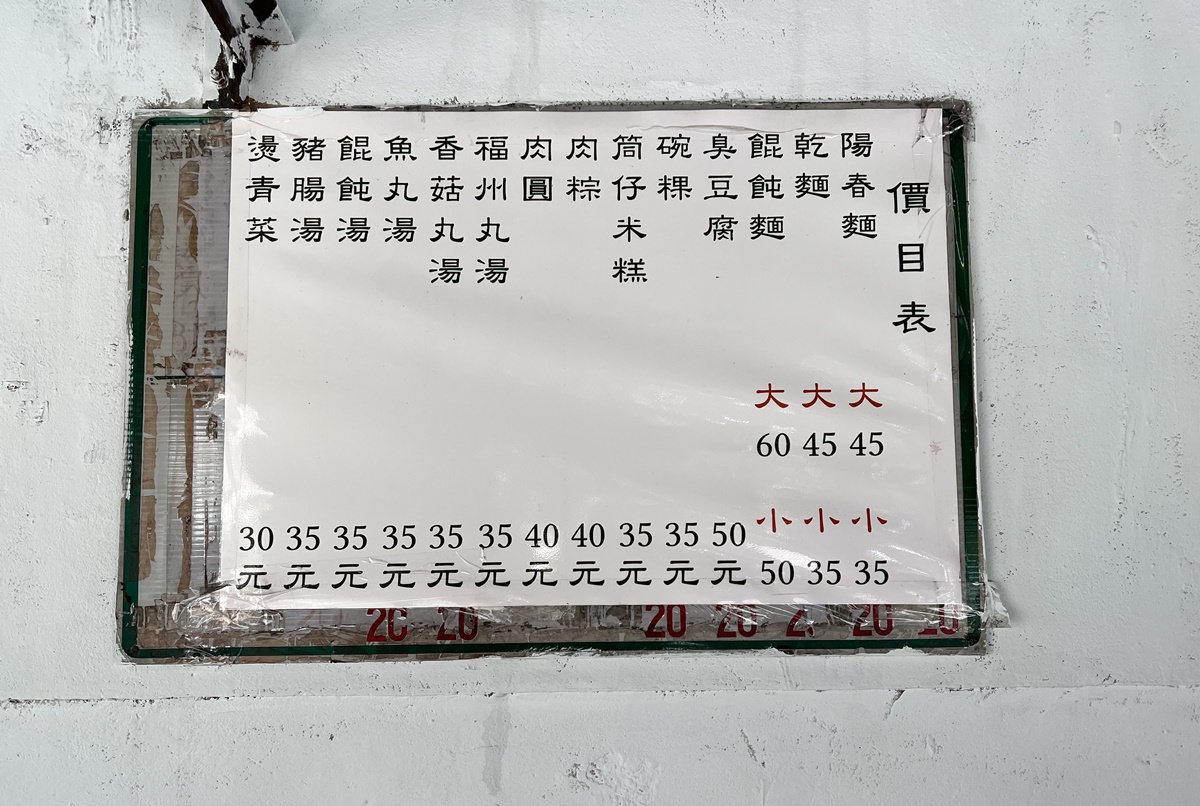 價目表
陽春麵 大 45 小 35
乾麵 大 45 小 35
餛飩麵 大 60 小 50
臭豆腐 50元
碗粿 35元
筒仔米糕 35元
肉粽 40元
肉圓 40元
福州丸湯 35元
香菇丸湯 35元
魚丸湯 35元
餛飩湯 35元
豬腸湯 35元
燙青菜 30元
20 20 20 20 20